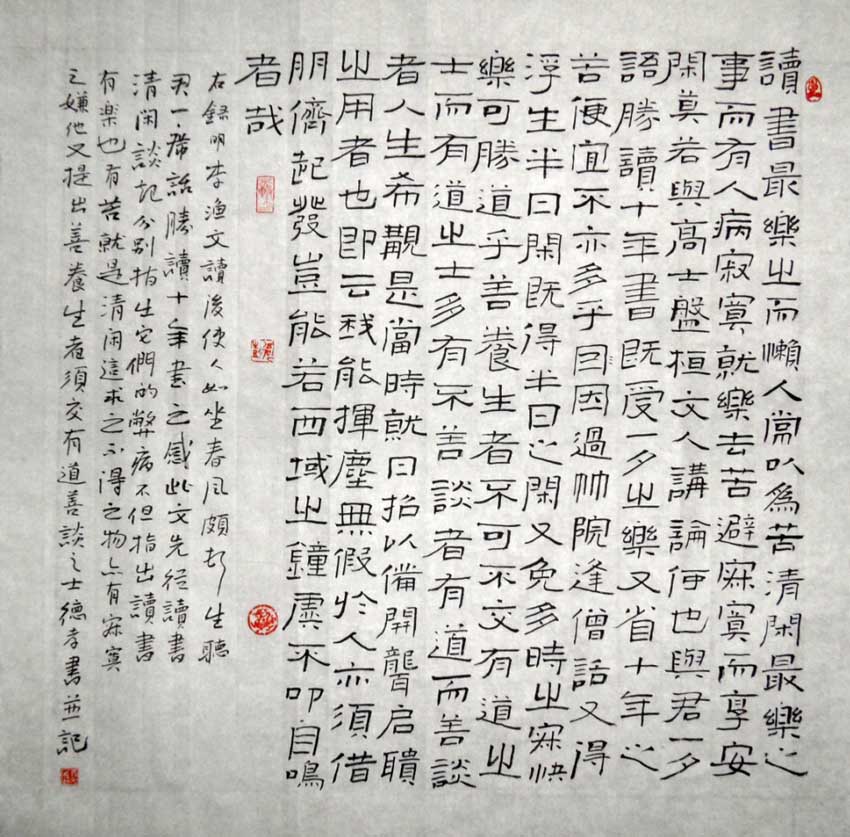 讀書最樂之而懶人常以為苦清閑最樂之
事而有人病寂寞就樂去苦避寂寞而享安
閑莫若與高士盤桓文人講論何也與君一夕
語勝讀十年書既受一夕之樂又省十年之
苦便宜不亦多乎因因過竹院逢僧話又得
浮生半日閑既得半日之閑又免多時之寂快
樂可勝道乎善養生者不可不交有道之
士而有道之士多有不善談者有道而善談
者人生希覯是當時就日招以備開聾启聵
之用者也即云我能揮塵無假於人亦須借
朋儕起發豈能若西域之鐘虡不叩自鳴
者哉
右錄明李漁文讀後使人如坐春風頗生聽
君一席話勝讀十年書之感此文先從讀書
清閑談起分別指出它們的弊病不但指出讀書
有樂也有苦就是清閑這求之不得之物亦有寂寞
之嫌他又提出善養生者須交有道善談之士德孝書並記